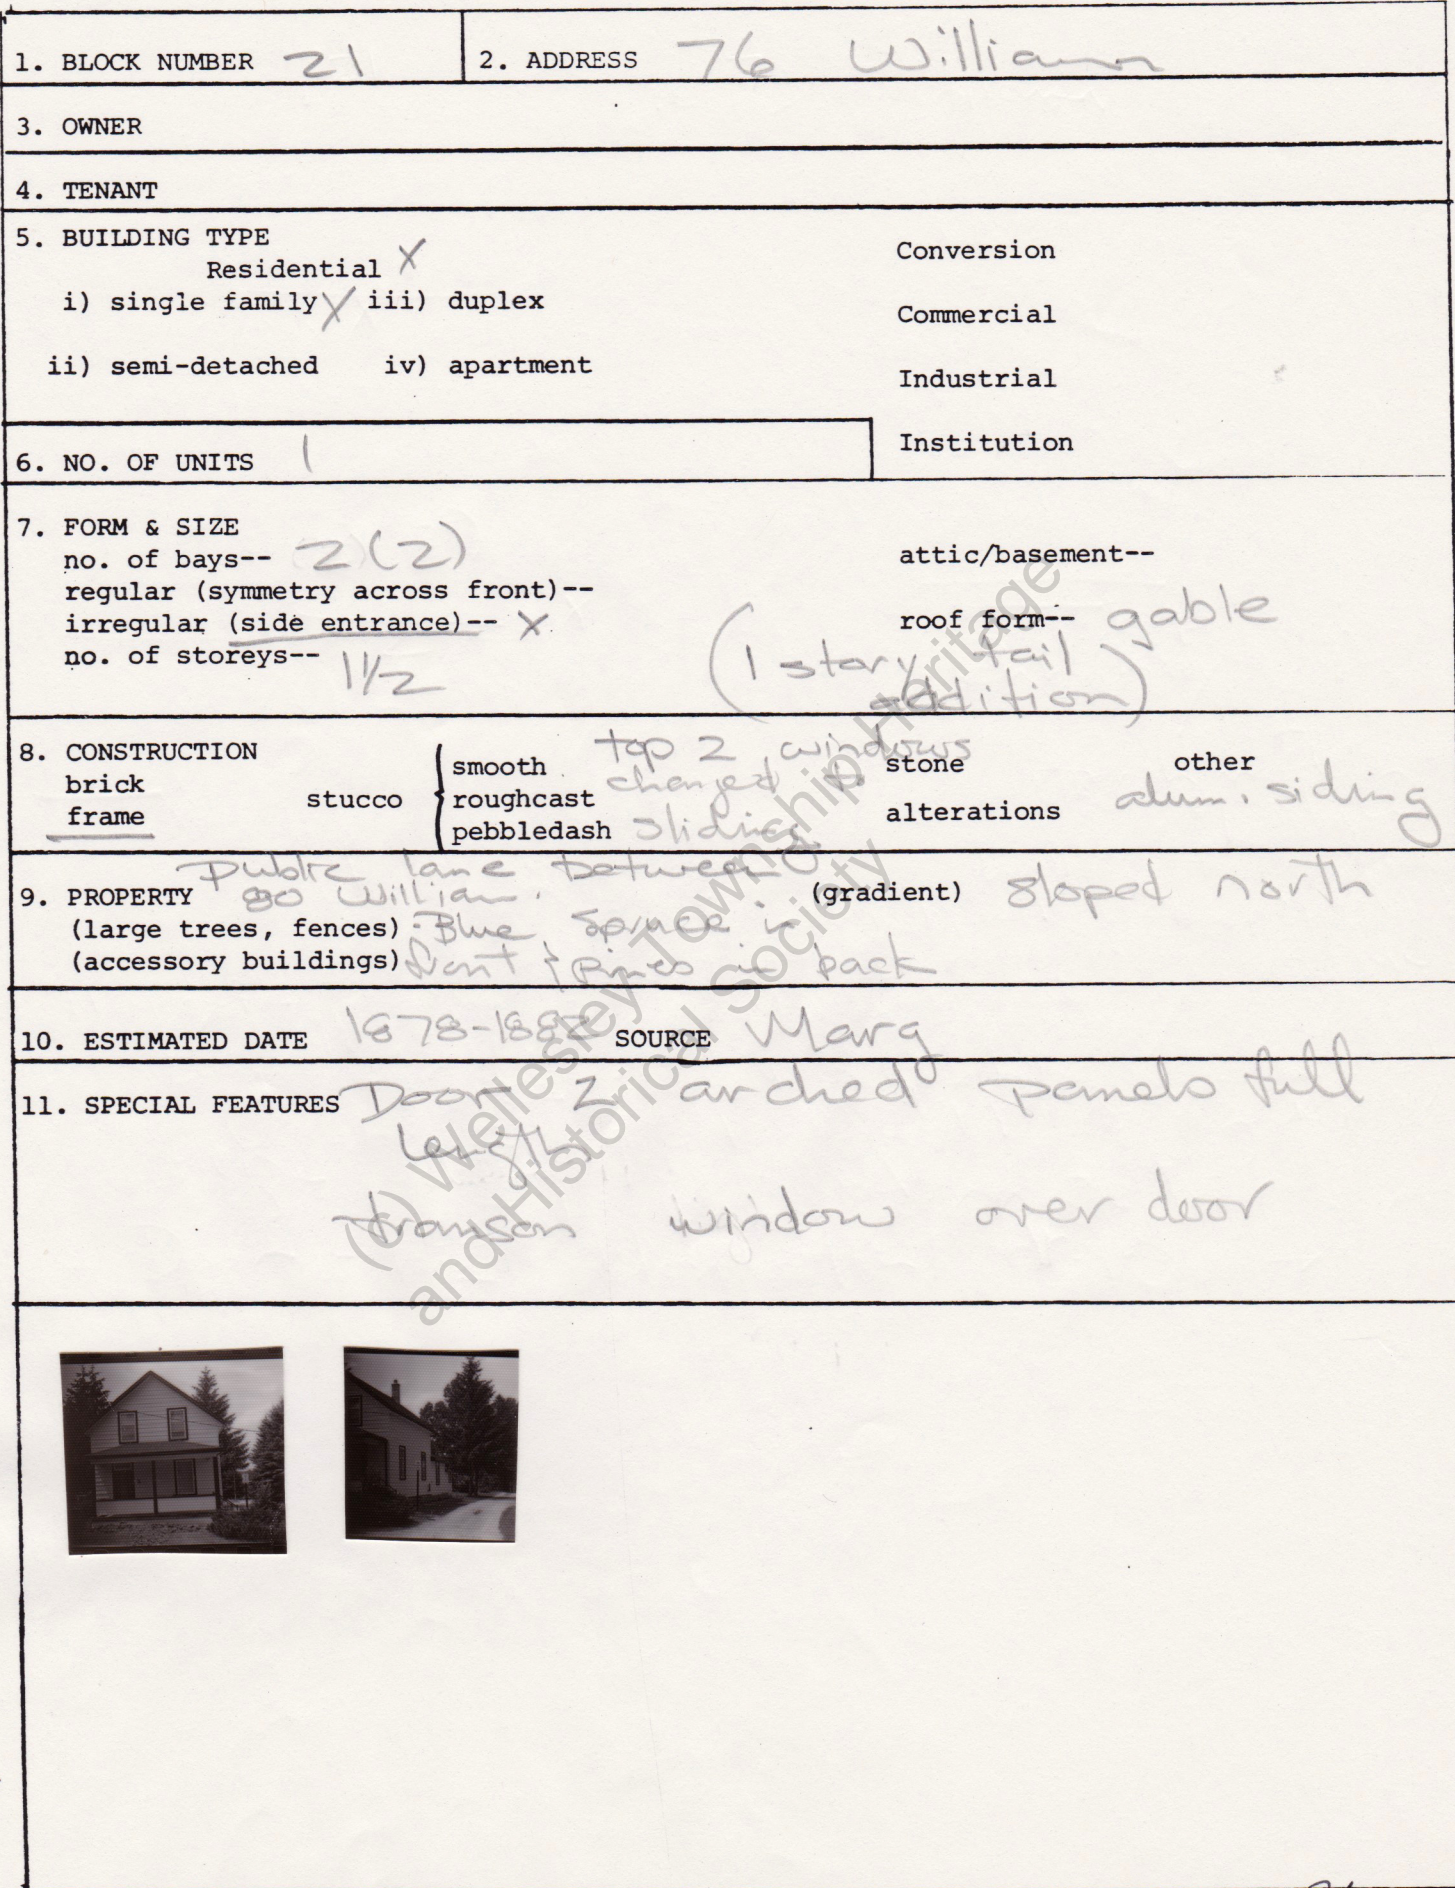 1. BLOCK NUMBER 21 2. ADDRESS 76 William
3. OWNER
4. TENANT
5. BUILDING TYPE
Residential X
i) single family X iii) duplex
ii) semi-detached iv) apartment
Conversion
Commercial
Industrial
Institution
6. NO. OF UNITS 1
7. FORM & SIZE
no. of bays-- 2(2)
regular (symmetry across front)--
irregular (side entrance)-- X
no. of storeys-- 1 1/2
attic/basement--
roof form-- gable
(1 story tail
addition)
8. CONSTRUCTION
brick
frame
stucco
smooth
roughcast
pebbledash
top 2 windows
changed to
sliding
stone
alterations
other
alum. siding
9. PROPERTY
(large trees, fences)
(accessory buildings)
public lane between
80 William.
- Blue Spruce in
front & pines in back
(gradient) sloped north
10. ESTIMATED DATE 1878-1882 SOURCE Marg
11. SPECIAL FEATURES Door 2 arched panels full
length.
transom window over door
(c) Wellesley Township Heritage
and Historical Society